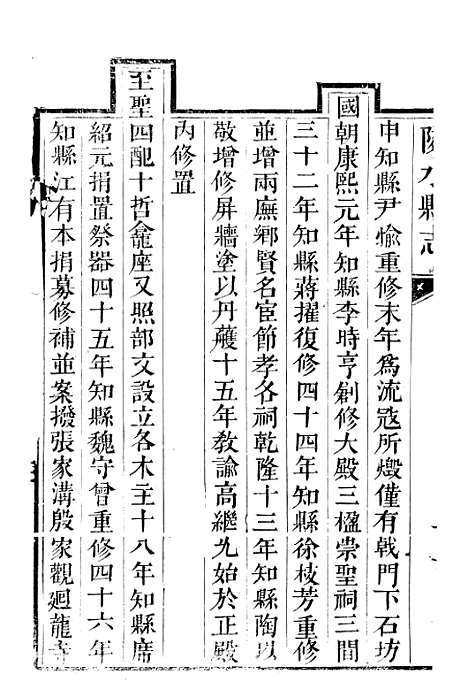 陵水縣志
申知縣尹愉重修末年爲流寇所燬僅有戟門下石坊
國朝康熙元年知縣李時亨創修大殿三楹崇聖祠三間
三十二年知縣蔣擢復修四十四年知縣徐枝芳重修
並增兩廡鄉賢名宦節孝各祠乾隆十三年知縣陶以
敬增修屏牆塗以丹雘十五年教諭高繼允始於正殿
內修置
至聖四配十哲龕座又照部文設立各木主十八年知縣席
紹元捐置祭器四十五年知縣魏守曾重修四十六年
知縣江有本捐募修補並案撥張家溝殷家觀廻龍寺